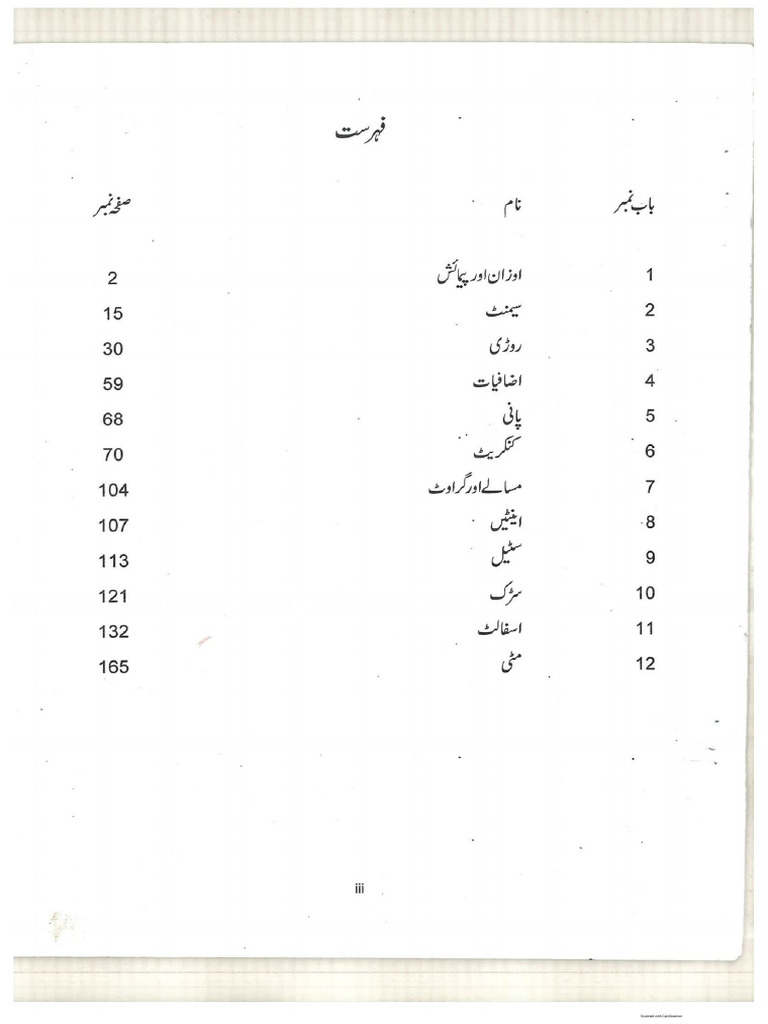 فہرست
باب نمبر نام صفحہ نمبر
1 اوزان اور پیمائش 2
2 سیمنٹ 15
3 روڑی 30
4 اضافیات 59
5 پانی 68
6 کنکریٹ 70
7 مسالے اور گراوٹ 104
8 اینٹیں 107
9 سٹیل 113
10 سڑک 121
11 اسفالٹ 132
12 مٹی 165
iii
Scanned with CamScanner